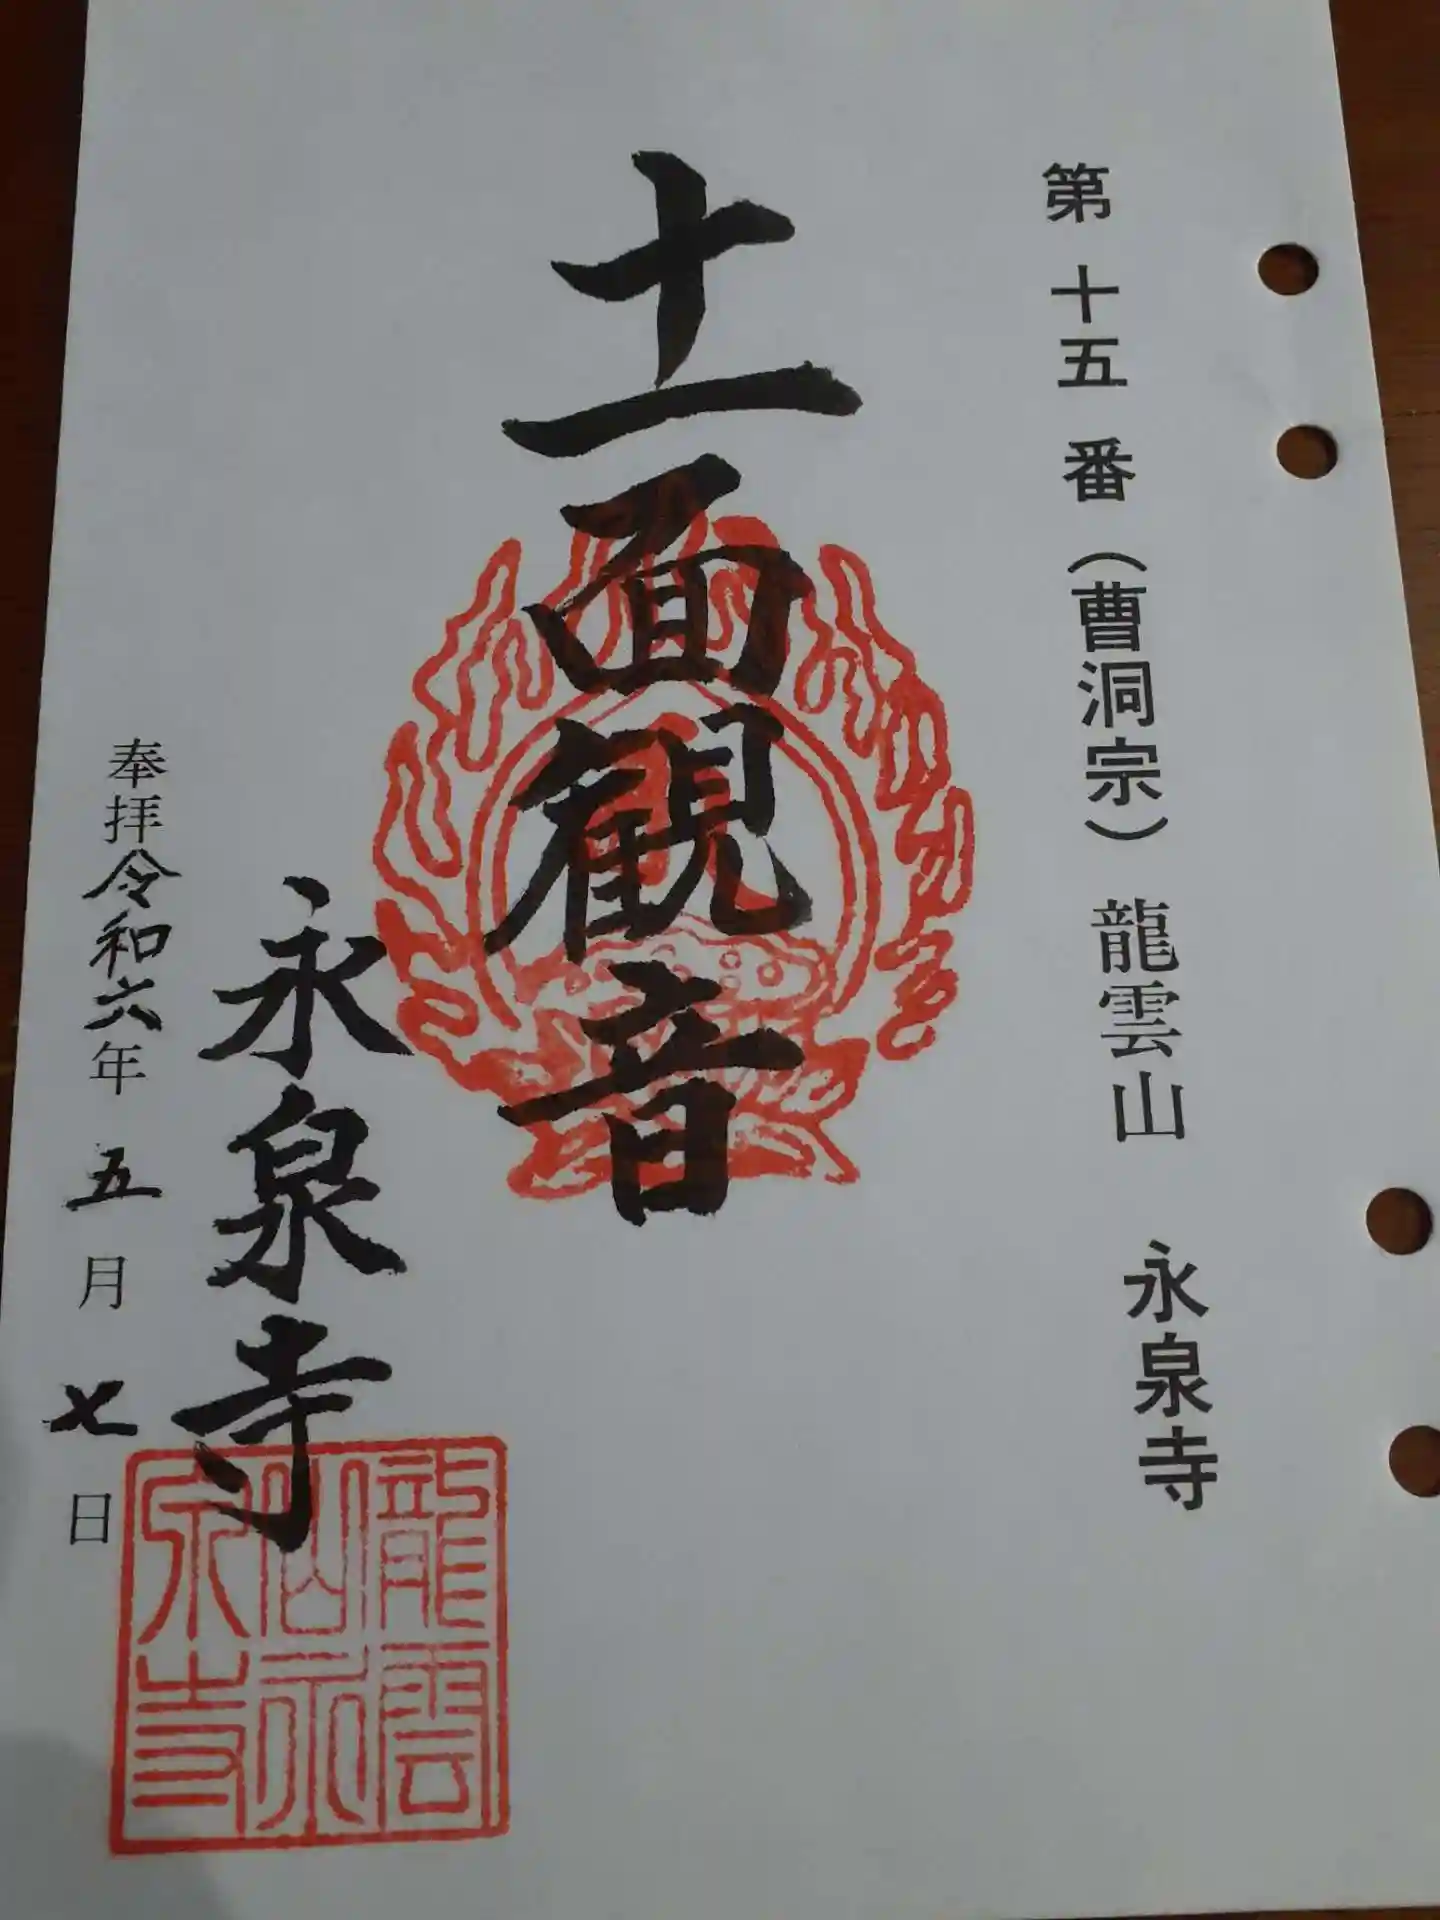 第十五番（曹洞宗）龍雲山 永泉寺
十一面観音
永泉寺
奉拝令和六年五月七日
龍雲
山永
泉寺